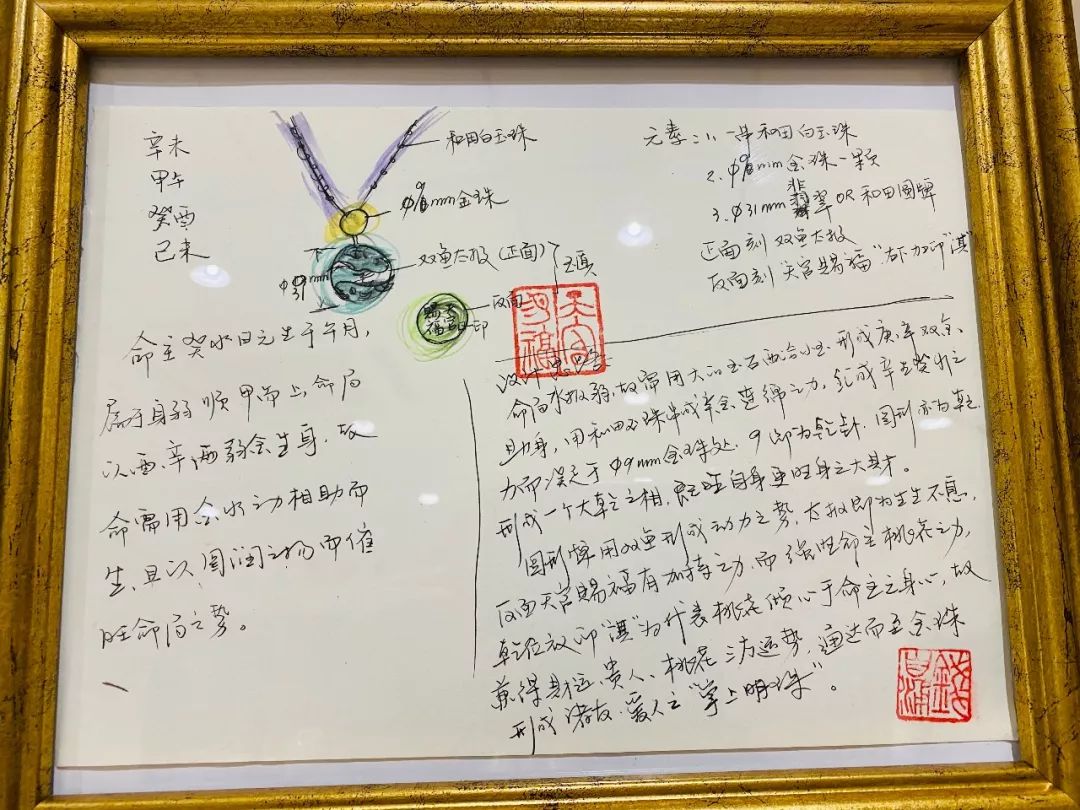 辛未
甲午
癸酉
己未
和田白玉珠
φ9mm金珠
双鱼太极(正面)
φ31mm
反面
印
元素:1、一串和田白玉珠
2、φ9mm金珠一颗
3、φ31mm翡翠OR和田圆牌
正面刻 双鱼太极
反面刻"天官賜福"
天官
賜福
命主癸水日元生于午月,
属于身弱顺甲而上,命局
以酉、辛两弱金生身,故
命需用金水之力相助而
生,且以圆润之物而催
旺命局之势。
设计思路:
命局水极弱,故需用大的玉石西洽小玉,形成庚、辛双金
助身,用和田玉珠串成辛金连绵之力,形成辛去癸水之
力而深定于φ9mm金珠处。9即为乾卦,圆形亦为乾,
形成一个大乾之相,既旺自身更旺身之大财。
圆形牌用双鱼形成动力之势,太极即为生生不息,
反面天官賜福有加持之力,而强旺命主桃花之力,
乾位放印"淇"为代表桃花倾心于命主之身心,故
获得财运、贵人、桃花三方运势,通达而至金珠
形成诸友、爱人之"掌上明珠"。